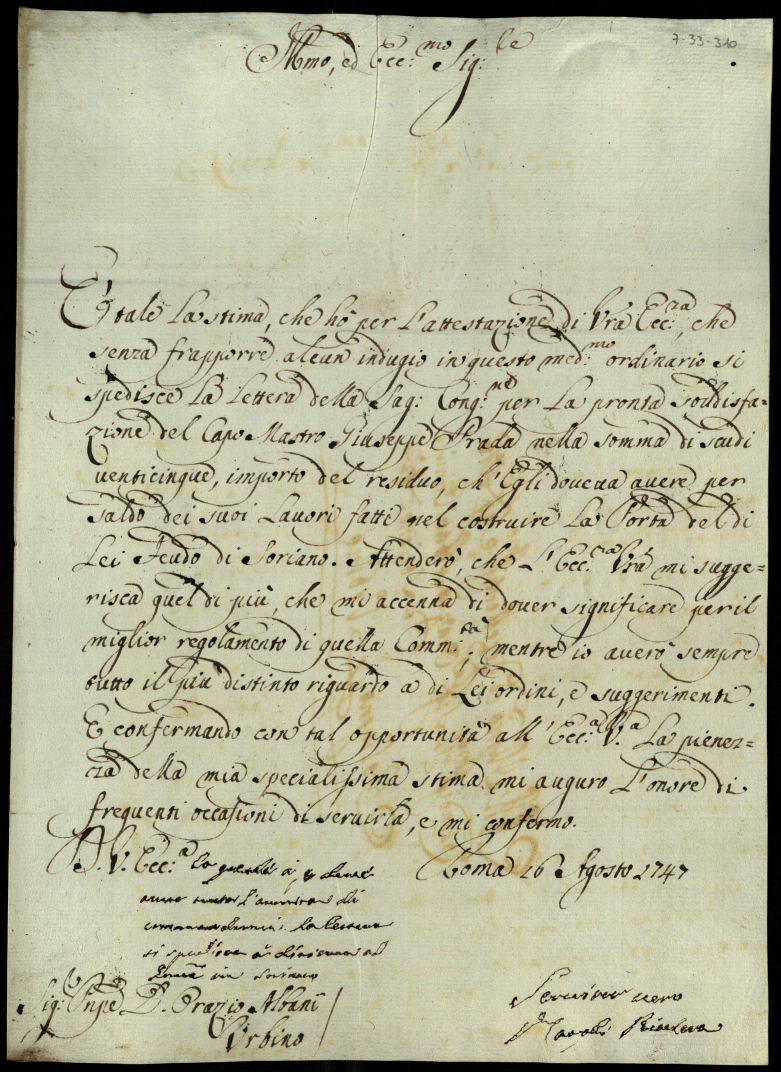 7-33-310
Illmo, ed Ecc:mo Sig:re
È tale La stima, che hò per L'attestazione di Vrã Ecc:za, che
senza frapporre alcun indugio in questo med:mo ordinario si
spedisce La Lettera della Sag: Cong:ne per La pronta soddisfa=
zione del Capo Mastro Giuseppe Prada nella somma di scudi
venticinque, importo del residuo, ch'Egli doveva avere per
saldo dei suoi Lavori fatti nel costruire La Porta del di
Lei Feudo di Soriano. Attenderò, che L'Ecc:za Vrã mi sugge=
risca quel di più, che mi accenna di dover significare per il
miglior regolamento di quella Comm:tà; mentre io averò sempre
tutto il più distinto riguardo a di Lei ordini, e suggerimenti.
E confermando con tal opportunità all'Ecc:a V.a La pienez=
za della mia specialissima stima mi auguro L'onore di
frequenti occasioni di servirla, e mi confermo.
D. V. Ecc:a la quale
Roma 16 Agosto 1747
la lettera
si spedisce a
in Soriano
Sig:r Pnpe D. Orazio Albani
Urbino
Servitor vero